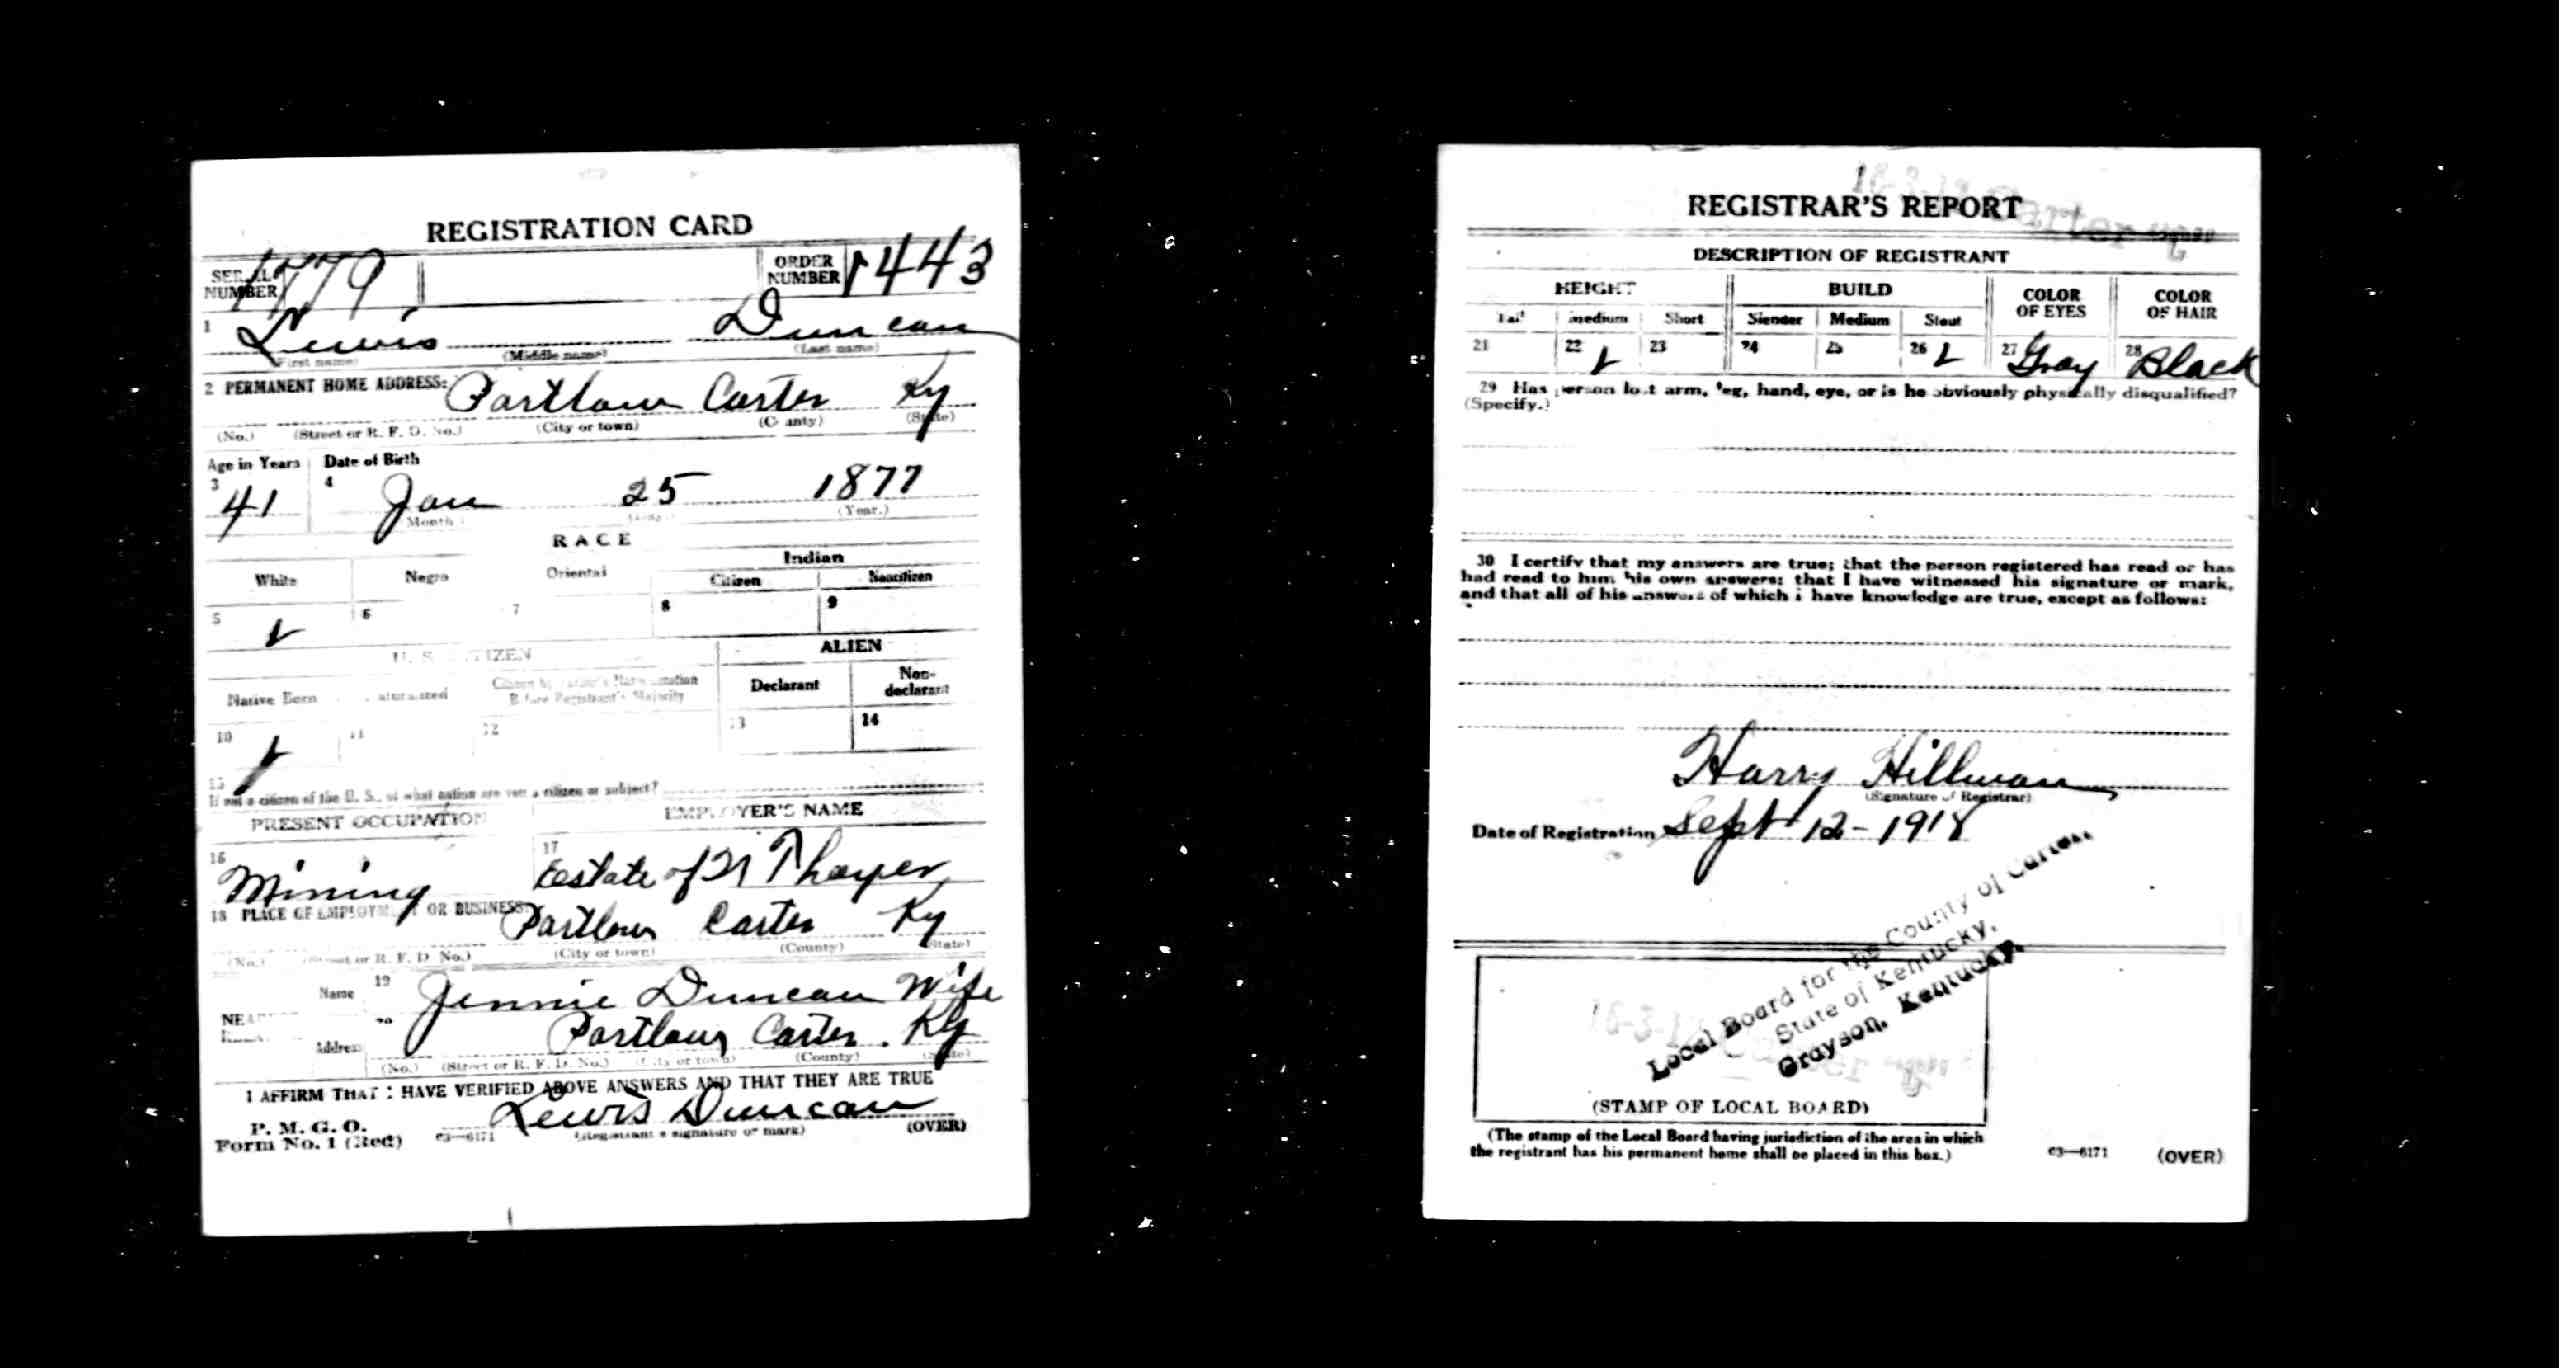 REGISTRATION CARD
SERIAL NUMBER 1779 ORDER NUMBER 1443
1 Lewis Duncan
(First name) (Middle name) (Last name)
2 PERMANENT HOME ADDRESS: Partlow Carter Ky
(No.) (Street or R. F. D. No.) (City or town) (County) (State)
Age in Years Date of Birth
3 41 4 Jan 25 1877
Month (Year.)
RACE
White Negro Oriental Indian
Citizen Noncitizen
5 ✓ 6 7 8 9
U. S. CITIZEN ALIEN
Native Born Naturalized Citizen by Father's Naturalization Before Registrant's Majority Declarant Non-declarant
10 ✓ 11 12 13 14
15
If not a citizen of the U. S., of what nation are you a citizen or subject?
PRESENT OCCUPATION EMPLOYER'S NAME
16 Mining 17 Estate of Thayer
18 PLACE OF EMPLOYMENT OR BUSINESS: Partlow Carter Ky
(No.) (Street or R. F. D. No.) (City or town) (County) (State)
Name 19 Jennie Duncan Wife
Address 20 Partlow Carter. Ky
(No.) (Street or R. F. D. No.) (City or town) (County) (State)
I AFFIRM THAT I HAVE VERIFIED ABOVE ANSWERS AND THAT THEY ARE TRUE
Lewis Duncan
P. M. G. O.
Form No. 1 (Red) 03—6171 (Registrant's signature or mark) (OVER)
REGISTRAR'S REPORT
DESCRIPTION OF REGISTRANT
HEIGHT BUILD COLOR OF EYES COLOR OF HAIR
Tall Medium Short Slender Medium Stout
21 22 ✓ 23 24 25 26 ✓ 27 Gray 28 Black
29 Has person lost arm, leg, hand, eye, or is he obviously physically disqualified?
(Specify.)
30 I certify that my answers are true; that the person registered has read or has
had read to him his own answers; that I have witnessed his signature or mark,
and that all of his answers of which I have knowledge are true, except as follows:
Harry Hillman
(Signature of Registrar)
Date of Registration Sept 12-1918
Local Board for the County of Carter,
State of Kentucky,
Grayson, Kentucky.
(STAMP OF LOCAL BOARD)
(The stamp of the Local Board having jurisdiction of the area in which
the registrant has his permanent home shall be placed in this box.)
03—6171 (OVER)